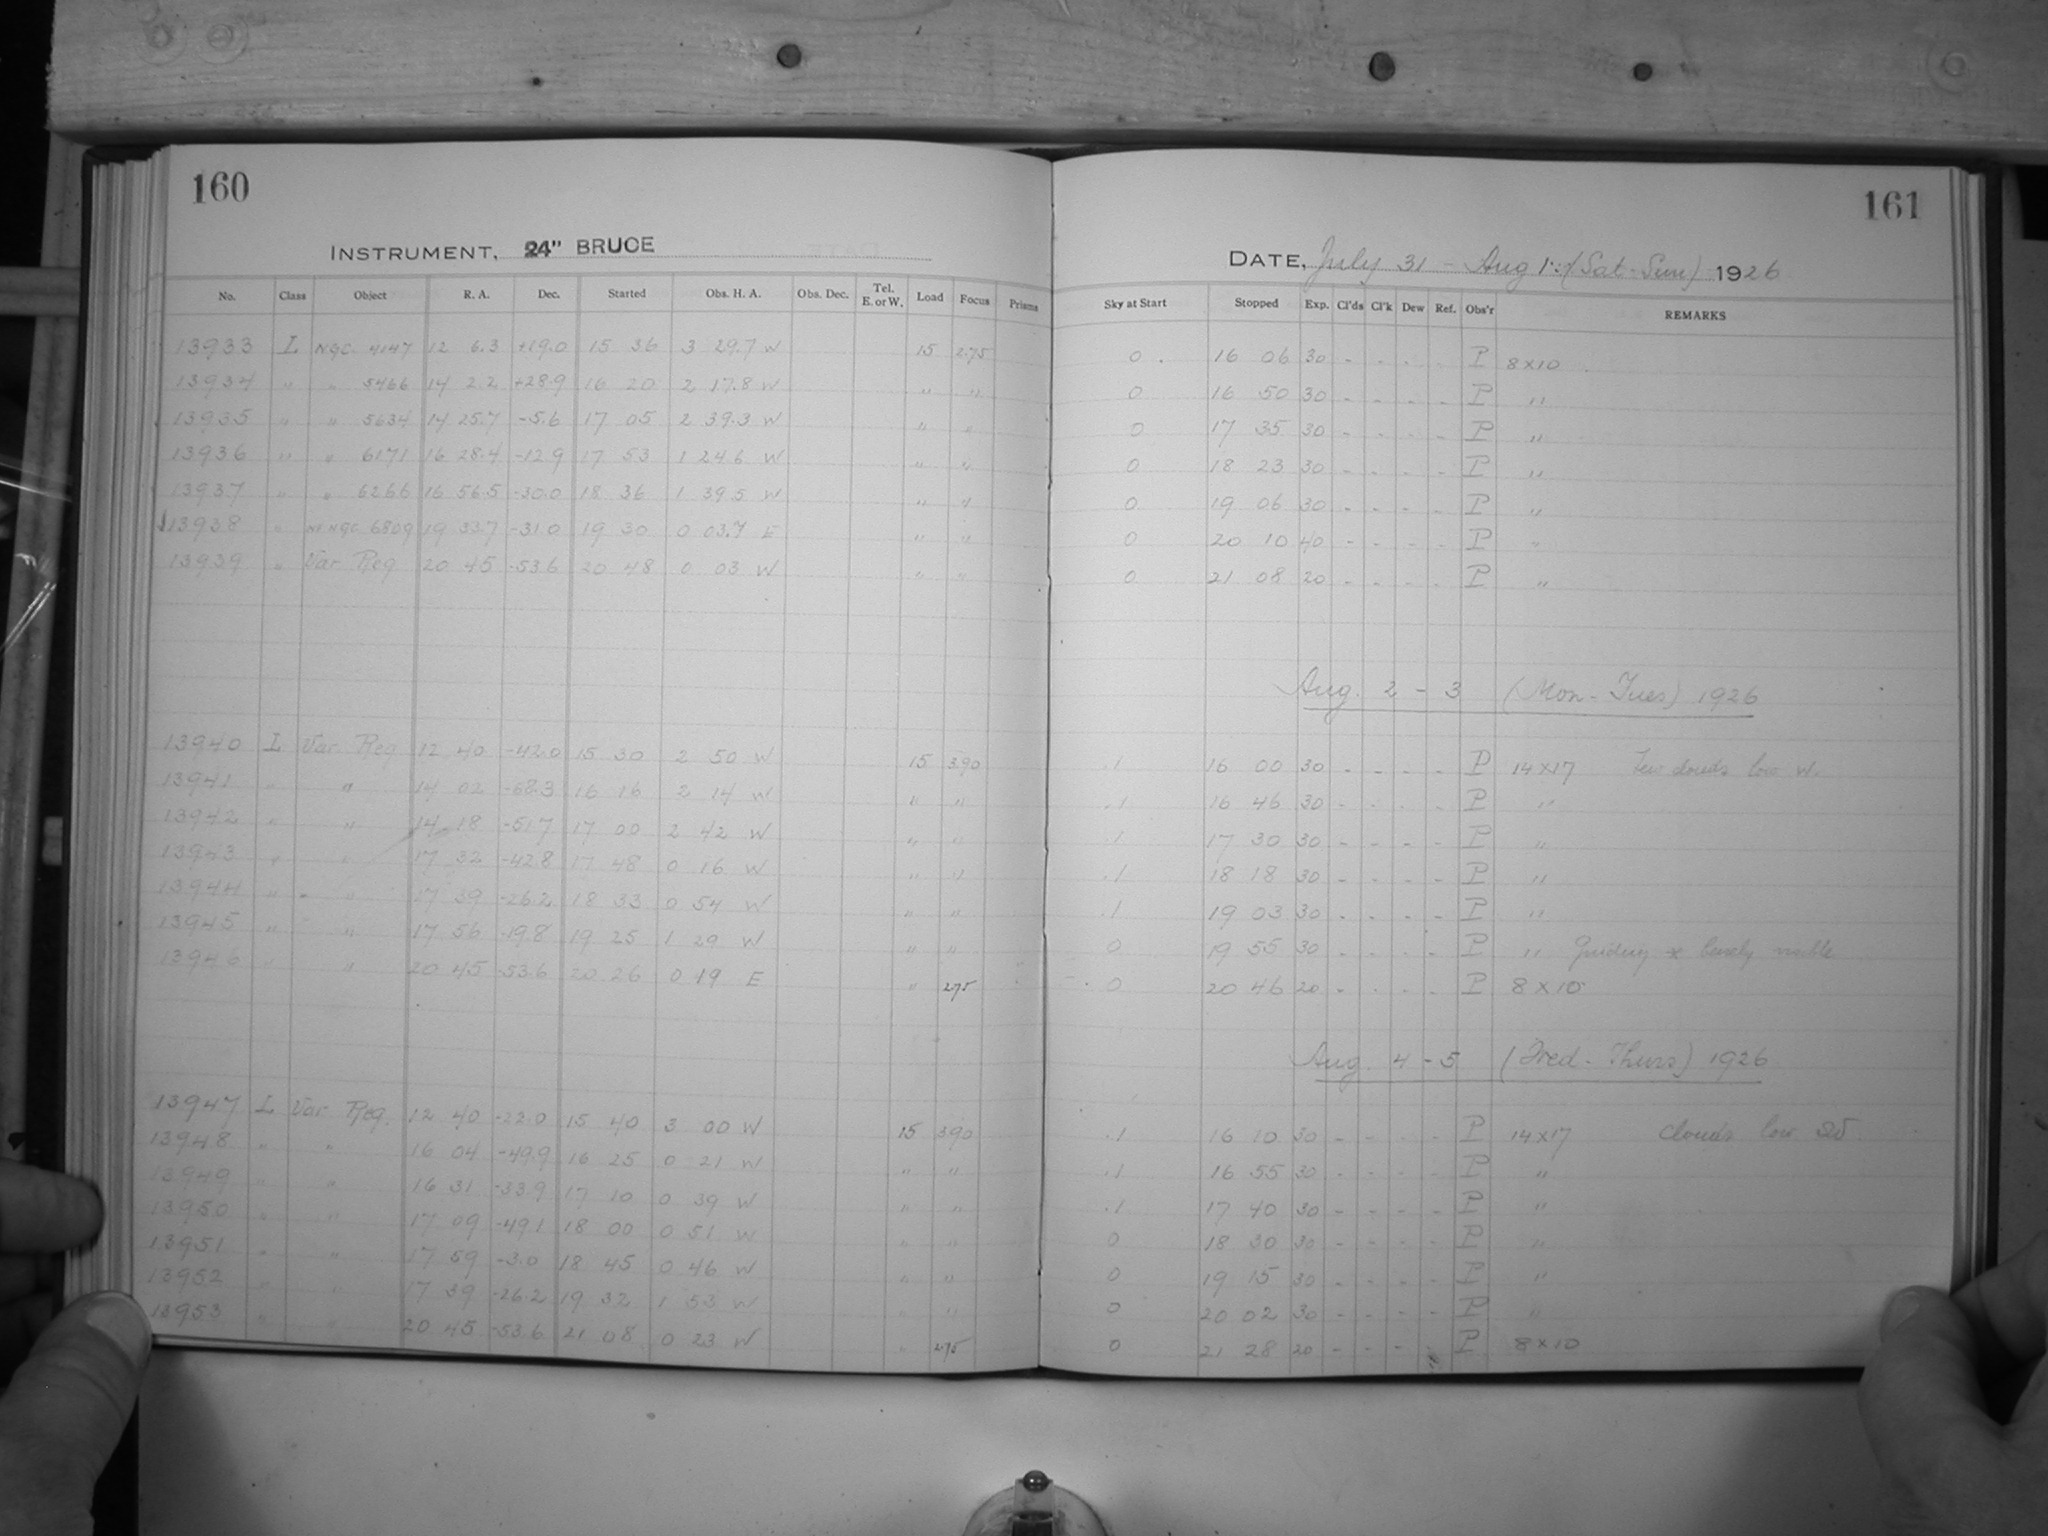 160
INSTRUMENT, 24" BRUCE
No. Class Object R. A. Dec. Started Obs. H. A. Obs. Dec. Tel. E. or W. Load Focus Prisms
13933 L NGC 4147 12 6.3 +19.0 15 36 3 29.7 W 15 2.75
13934 " " 5466 14 2.2 +28.9 16 20 2 17.8 W " "
13935 " " 5634 14 25.7 -5.6 17 05 2 39.3 W " "
13936 " " 6171 16 28.4 -12.9 17 53 1 24.6 W " "
13937 " " 6266 16 56.5 -30.0 18 36 1 39.5 W " "
13938 " NGC 6809 19 33.7 -31.0 19 30 0 03.7 E " "
13939 " Var Reg 20 45 -53.6 20 48 0 03 W " "
13940 L Var Reg 12 40 -42.0 15 30 2 50 W 15 3.90
13941 " " 14 02 -68.3 16 16 2 14 W " "
13942 " " 14 18 -51.7 17 00 2 42 W " "
13943 " " 17 32 -42.8 17 48 0 16 W " "
13944 " " 17 39 -26.2 18 33 0 54 W " "
13945 " " 17 56 -19.8 19 25 1 29 W " "
13946 " " 20 45 -53.6 20 26 0 19 E " 2.75
13947 L Var Reg. 12 40 -22.0 15 40 3 00 W 15 3.90
13948 " " 16 04 -49.9 16 25 0 21 W " "
13949 " " 16 31 -33.9 17 10 0 39 W " "
13950 " " 17 09 -49.1 18 00 0 51 W " "
13951 " " 17 59 -3.0 18 45 0 46 W " "
13952 " " 17 39 -26.2 19 32 1 53 W " "
13953 " " 20 45 -53.6 21 08 0 23 W " 2.75
161
DATE, July 31 - Aug 1 (Sat-Sun) 1926
Sky at Start Stopped Exp. Cl'ds Cl'k Dew Ref. Obs'r REMARKS
0 16 06 30 - - - - P 8x10
0 16 50 30 - - - - P "
0 17 35 30 - - - - P "
0 18 23 30 - - - - P "
0 19 06 30 - - - - P "
0 20 10 40 - - - - P "
0 21 08 20 - - - - P "
Aug. 2 - 3 (Mon-Tues) 1926
.1 16 00 30 - - - - P 14x17 Few clouds low W.
.1 16 46 30 - - - - P "
.1 17 30 30 - - - - P "
.1 18 18 30 - - - - P "
.1 19 03 30 - - - - P "
0 19 55 30 - - - - P " Guiding * barely visible
0 20 46 20 - - - - P 8x10
Aug. 4 - 5 (Wed-Thurs) 1926
.1 16 10 30 - - - - P 14x17 Clouds low
.1 16 55 30 - - - - P "
.1 17 40 30 - - - - P "
0 18 30 30 - - - - P "
0 19 15 30 - - - - P "
0 20 02 30 - - - - P "
0 21 28 20 - - - - P 8x10